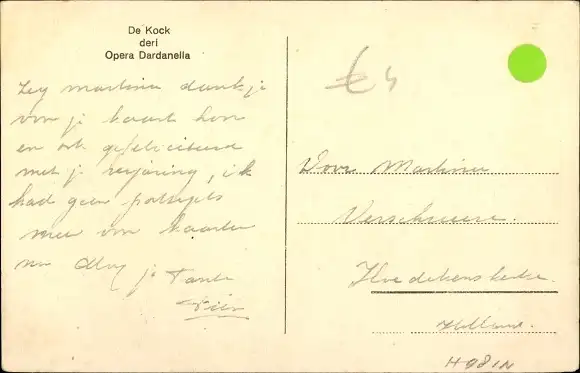 De Kock
deri
Opera Dardanella
Zeg Martina dank je
voor je kaart hoor
en ook gefeliciteerd
met je verjaring, ik
had geen postzegels
meer om kaarten
nu dag je Tante
€ 4
Voor Martina
Verschuere.
Holland.
H981N